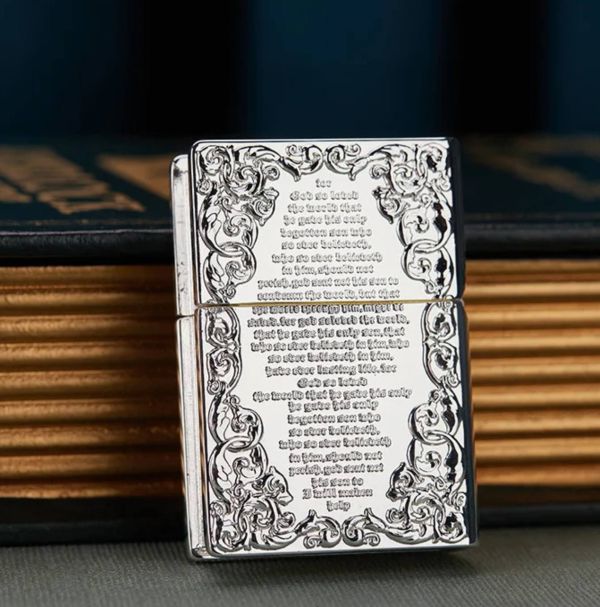 for
God so loved
the world that
he gave his only
begotten son who
so ever believeth,
who so ever believeth
in him,should not
perish,god sent not his son to
condemn the world,but that
the world through him,might be
saved.for god so loved the world,
that he gave his only son,that
who so ever believeth in him,who
so ever believeth in him,
have ever lasting life.for
God so loved
the world that he gave his only
he gave his only
begotten son who
so ever believeth,
who so ever believeth
in him,should not
perish,god sent not
his son to
I will
help